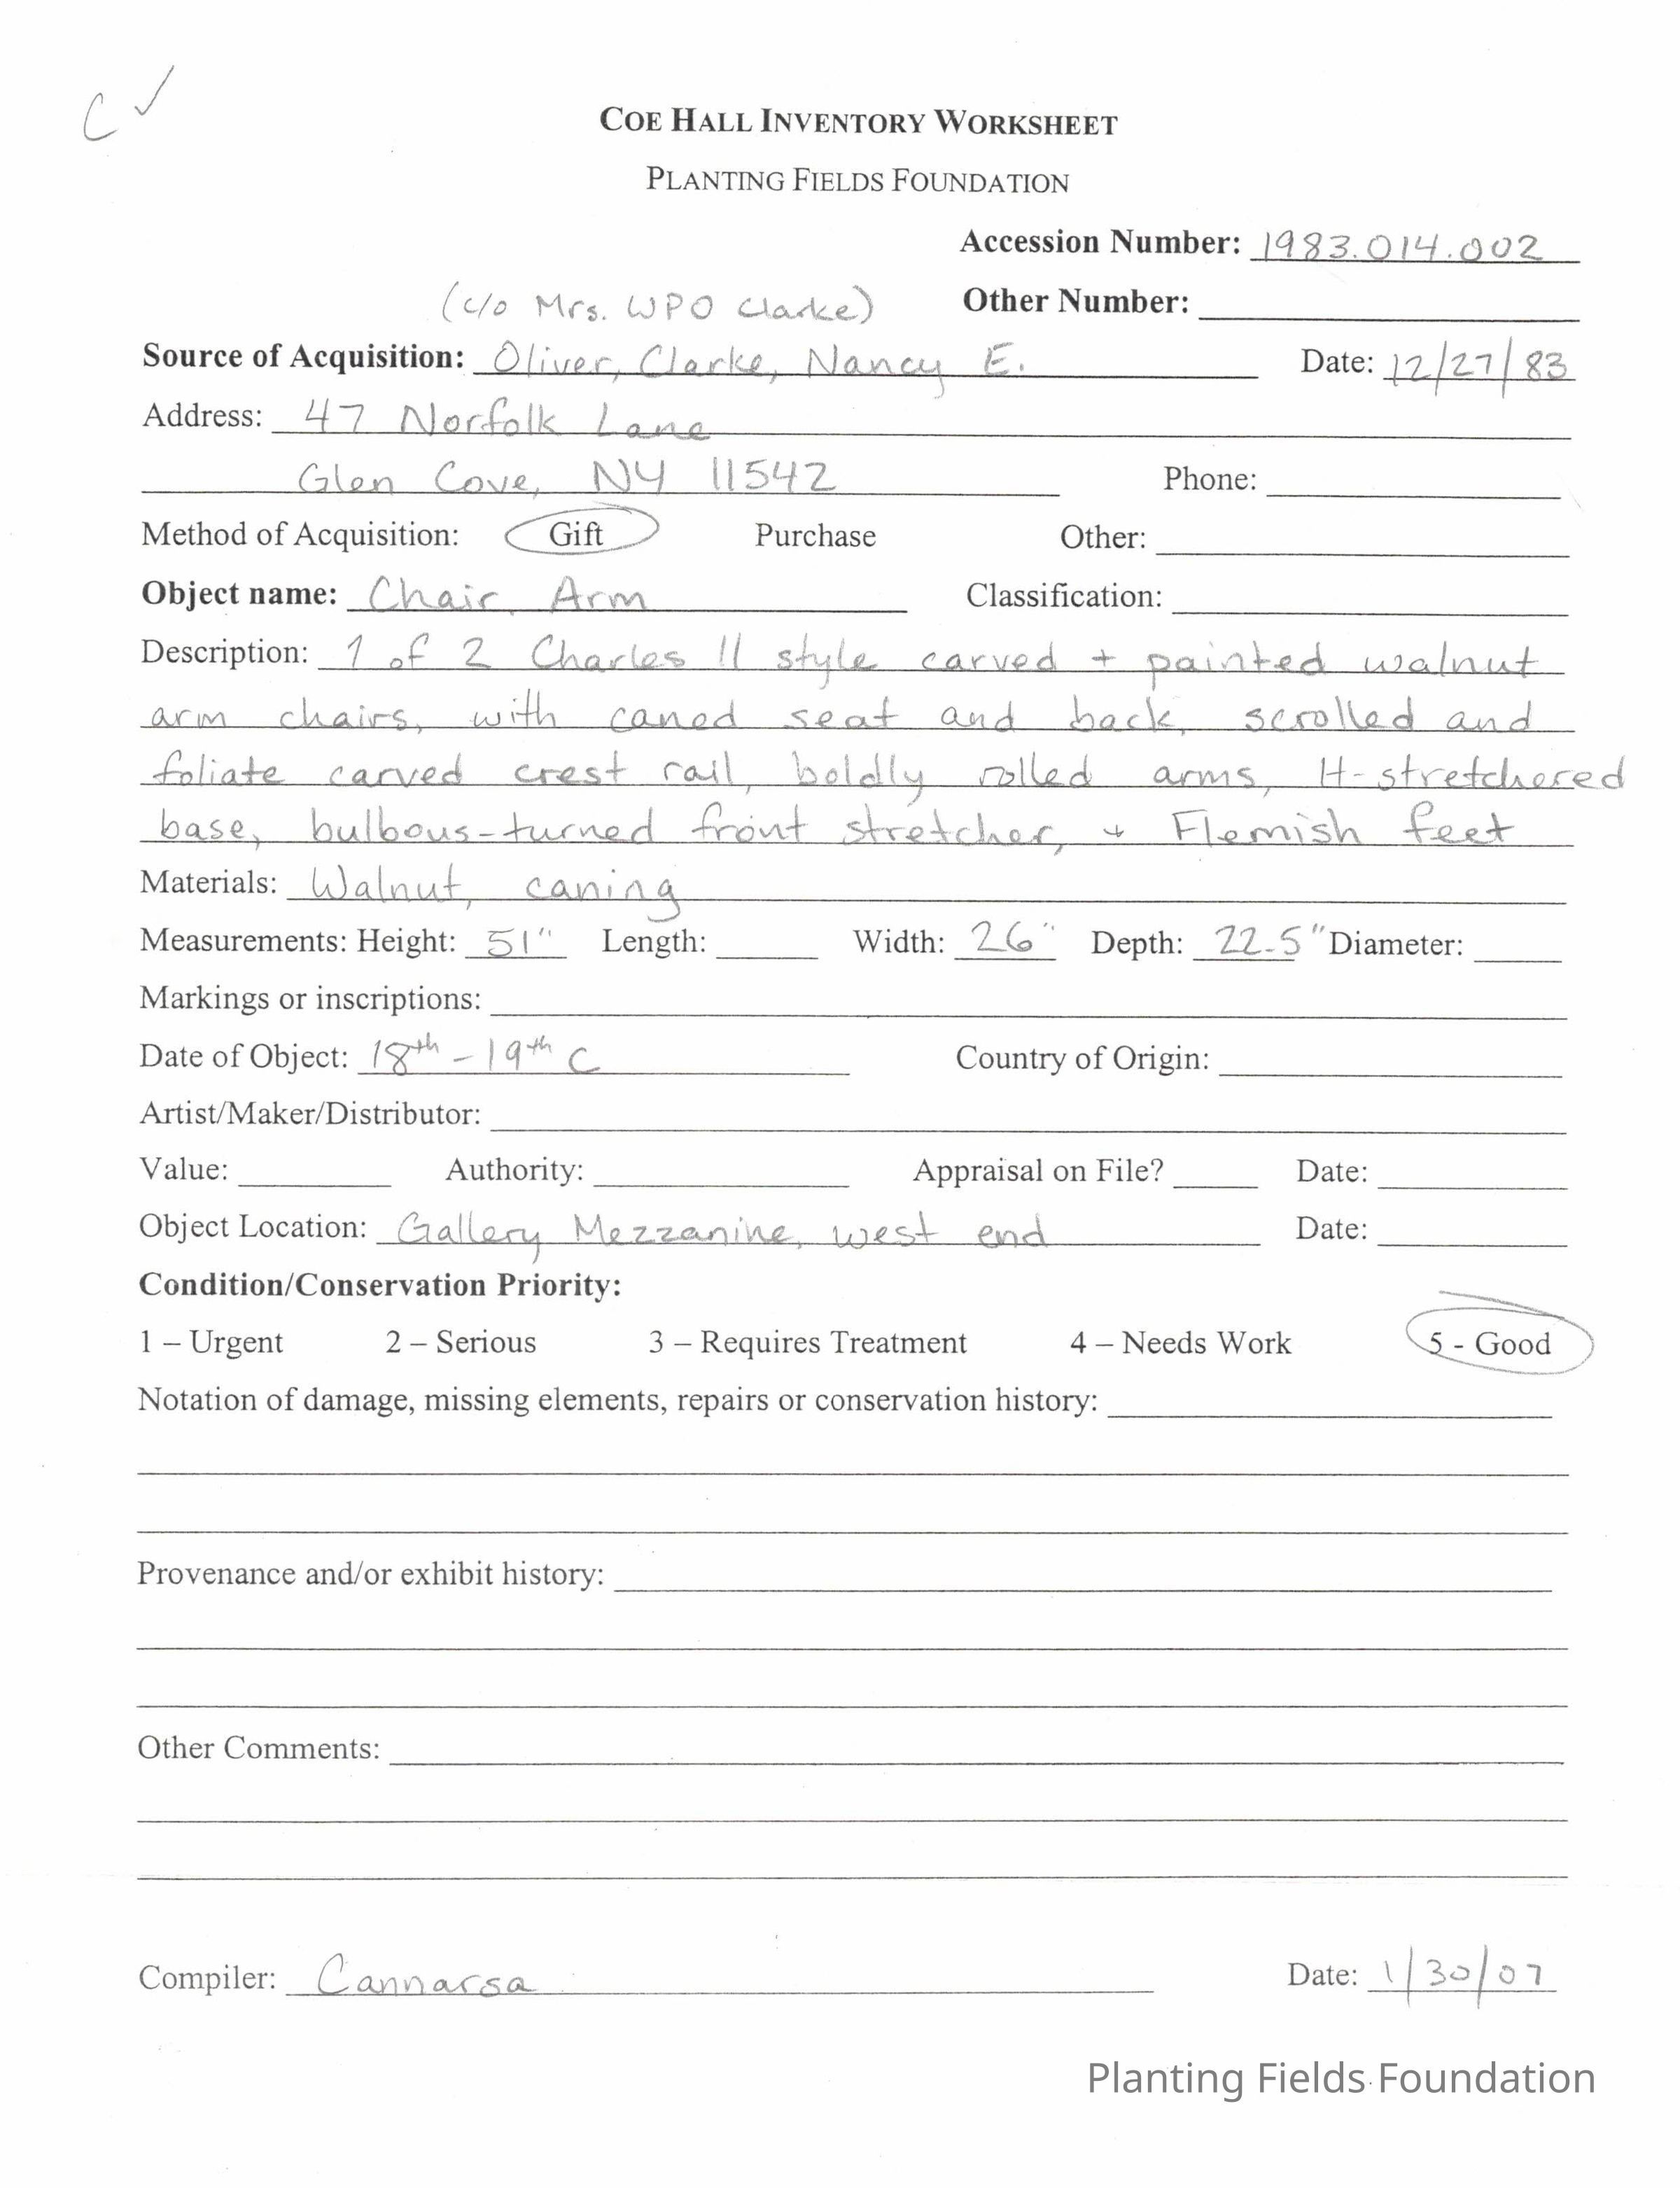 C ✓
COE HALL INVENTORY WORKSHEET
PLANTING FIELDS FOUNDATION
Accession Number: 1983.014.002
(c/o Mrs. WPO Clarke) Other Number:
Source of Acquisition: Oliver, Clarke, Nancy E. Date: 12/27/83
Address: 47 Norfolk Lane
Glen Cove, NY 11542 Phone:
Method of Acquisition: Gift Purchase Other:
Object name: Chair, Arm Classification:
Description: 1 of 2 Charles II style carved + painted walnut
arm chairs, with caned seat and back, scrolled and
foliate carved crest rail, boldly rolled arms, H-stretchered
base, bulbous-turned front stretcher, + Flemish feet
Materials: Walnut, caning
Measurements: Height: 51" Length: Width: 26" Depth: 22.5" Diameter:
Markings or inscriptions:
Date of Object: 18th - 19th C Country of Origin:
Artist/Maker/Distributor:
Value: Authority: Appraisal on File? Date:
Object Location: Gallery Mezzanine, west end Date:
Condition/Conservation Priority:
1 – Urgent 2 – Serious 3 – Requires Treatment 4 – Needs Work 5 - Good
Notation of damage, missing elements, repairs or conservation history:
Provenance and/or exhibit history:
Other Comments:
Compiler: Cannarsa Date: 1/30/07
Planting Fields Foundation